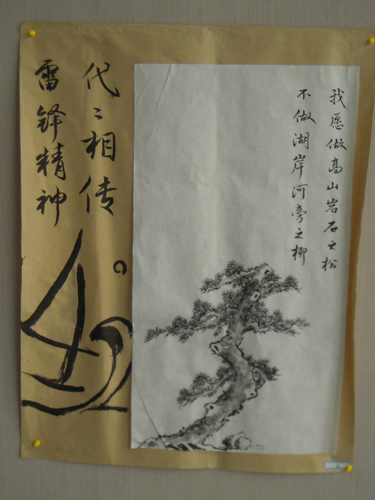 我愿做高山岩石之松
不做湖岸河旁之柳
代代相传
雷锋精神